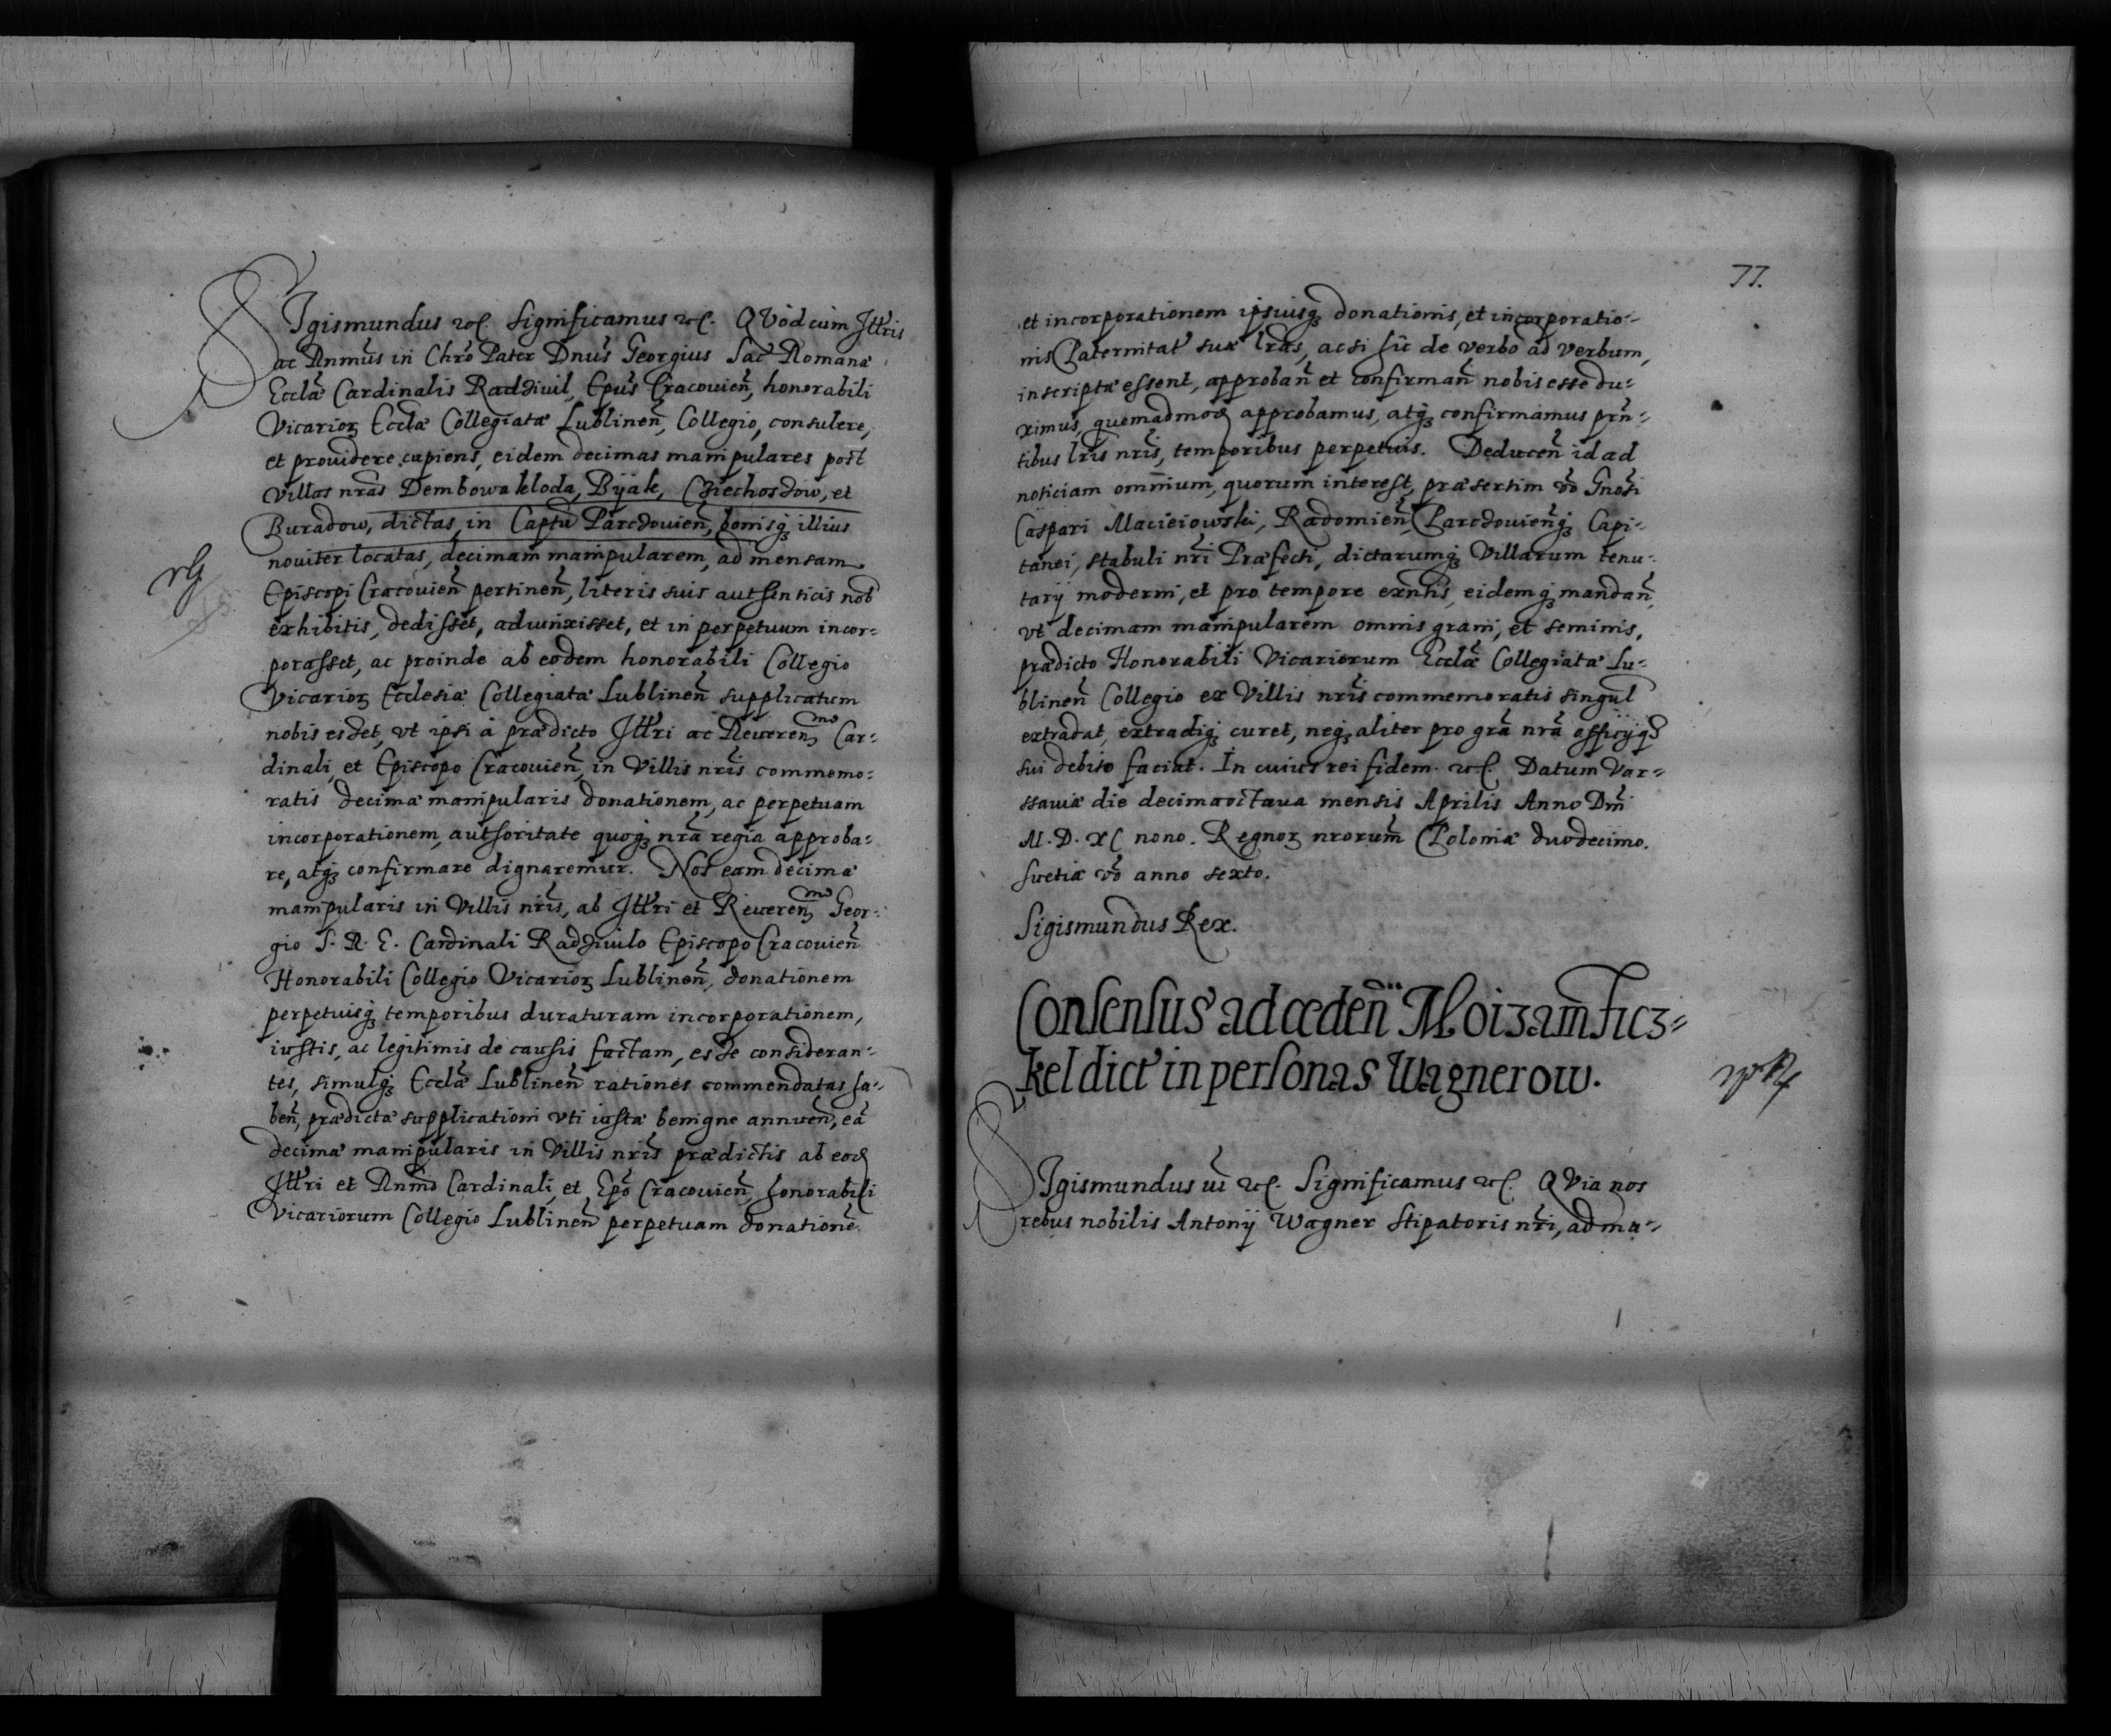 SIgismundus etc. Significamus etc. QVod cum Illris
ac Rnmus in Chro Pater Dnus Georgius Sac Romanæ
Ecclæ Cardinalis Radziwil, Epus Cracovien, honorabili
Vicarior Ecclæ Collegiatæ Lublinen, Collegio, consulere,
et prouidere cupiens, eidem decimas manipulares post
villas nras Dembowakloda, Byiak, Cziechosdow, et
Buradow, dictas, in Captu Parczouien, bonisq illius
nouiter locatas, decimam manipularem, ad mensam
Episcopi Cracouien pertinen, literis suis authenticis nob
exhibitis, dedisset, adiunxisset, et in perpetuum incor-
porasset, ac proinde ab eodem honorabili Collegio
Vicarior Ecclesiæ Collegiatæ Lublinen supplicatum
nobis esset, vt ipsi à prædicto Illri ac Reueren mo Car-
dinali, et Episcopo Cracouien, in Villis nris commemo-
ratis decimæ manipularis donationem, ac perpetuam
incorporationem, authoritate quoq nra regia approba-
re, atq confirmare dignaremur. Nos eam decimæ
manipularis in Villis nris, ab Illri et Reueren mo Geor-
gio S. R. E. Cardinali Radziuilo Episcopo Cracouien
Honorabili Collegio Vicarior Lublinen, donationem
perpetuisq temporibus duraturam incorporationem,
iustis, ac legitimis de causis factam, esse consideran-
tes, simulq Ecclæ Lublinen rationes commendatas ha-
ben, prædictæ supplicationi vti iustæ benigne annuen, eã
decimæ manipularis in Villis nris prædictis ab eod
Illri et Rnmo Cardinali, et Epo Cracouien, honorabili
Vicariorum Collegio Lublinen perpetuam donationẽ
77.
et incorporationem ipsiusq donationis, et incorporatio-
nis Paternitat suæ lras, ac si hic de verbo ad verbum,
inscriptæ essent, approban et confirman nobis esse du-
ximus, quemadmod approbamus, atq confirmamus prn-
tibus lris nris, temporibus perpetuis. Deducen id ad
noticiam omnium, quorum interest, præsertim vo Gnosi
Caspari Macieiowski, Radomien, Parczouienq Capi-
tanei, stabuli nri Præfecti, dictarumq Villarum tenu-
tarij moderni, et pro tempore exntis, eidemq mandan,
vt decimam manipularem omnis grani, et seminis,
prædicto Honorabili Vicariorum Ecclæ Collegiatæ Lu-
blinen Collegio ex Villis nris commemoratis singul
extradat, extradiq curet, neq aliter pro gra nra officijq
sui debito faciat. In cuius rei fidem. etc. Datum Var-
ssauiæ die decimaoctaua mensis Aprilis Anno Dni
M. D. XC nono. Regnor nrorum Poloniæ duodecimo.
Suetiæ vo anno sexto.
Sigismundus Rex.
Consensus ad ceden Moizam Ficz-
kel dict in personas Wagnerow.
SIgismundus iii etc. Significamus etc. QVia nos
rebus nobilis Antonij Wagner Stipatoris nri, ad ma-